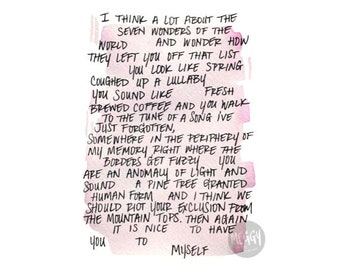 I THINK A LOT ABOUT THE
SEVEN WONDERS OF THE
WORLD AND WONDER HOW
THEY LEFT YOU OFF THAT LIST
YOU LOOK LIKE SPRING
COUGHED UP A LULLABY
YOU SOUND LIKE FRESH
BREWED COFFEE AND YOU WALK
TO THE TUNE OF A SONG I'VE
JUST FORGOTTEN,
SOMEWHERE IN THE PERIPHERY OF
MY MEMORY RIGHT WHERE THE
BORDERS GET FUZZY YOU
ARE AN ANOMALY OF LIGHT AND
SOUND A PINE TREE GRANTED
HUMAN FORM AND I THINK WE
SHOULD RIOT YOUR EXCLUSION FROM
THE MOUNTAIN TOPS. THEN AGAIN
IT IS NICE TO HAVE
YOU TO MYSELF